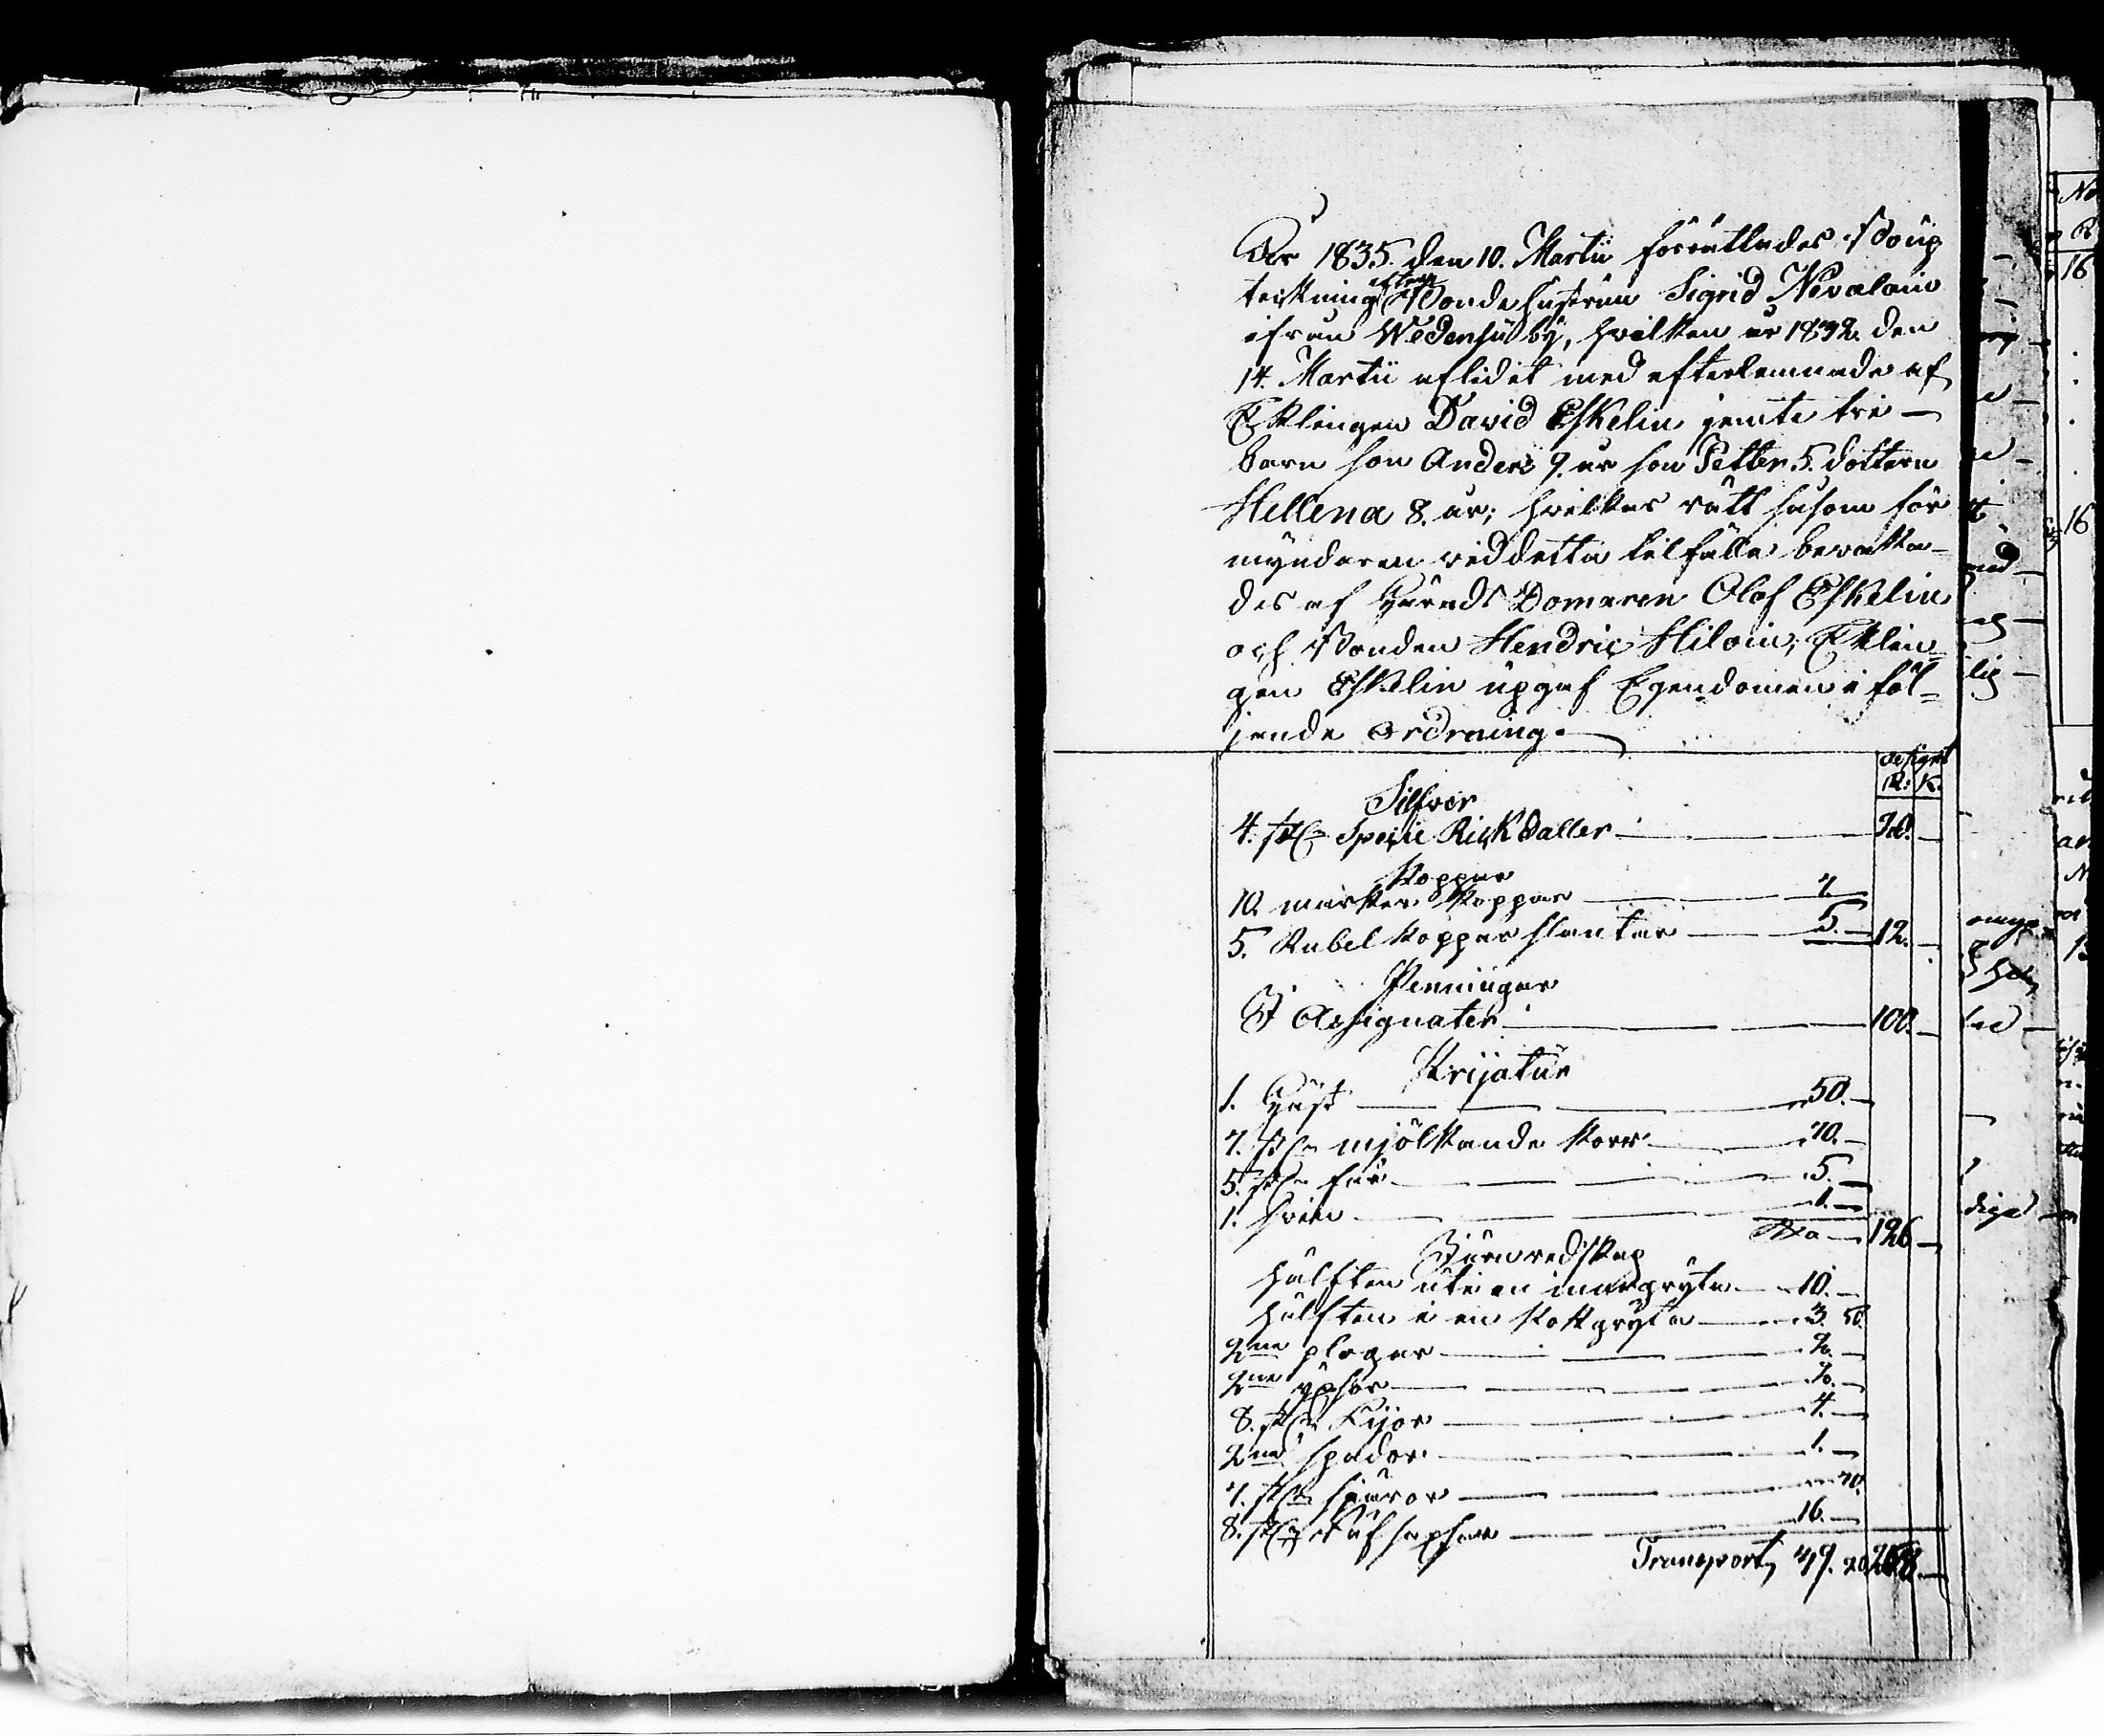 År 1835. den 10. Martii förrättades Boup
tekning efter Bondehustrun Sigrid Nevalain
ifrån Wedensuby, hvilken år 1832. den
14. Martii aflidit med efterlemnade af
Eklingen David Eskelin jemte tre —
barn son Anders 9. år son Petter 5. dottern
Hellena 8. år; hvilkas rätt såsom för
myndaren vid detta tilfälle bevaka-
des af Härads Domaren Olof Eskelin
och Bonden Hendric Hiloin, Eklin=
gen Eskelin upgaf Egendomen i föl=
jande ordning.
Assignat
R: K.
Silfver
4. st. Specie Rickdaller — 20. —
Koppar
10. marker Koppar — 7. —
5. Rubel koppar slantar — 5. — 12. —
Penningar
I Assignater — 100. —
Krijatur
1. Häst — 50. —
7. st. mjölkande kor — 70. —
5. st. får — 5. —
1. svin — 1. —
S:a — 126 —
Järnredskap
hälften uti en gryta — 10. —
hälften i en kokgryta — 3. 50.
2ne plogar — 2. —
2ne yxor — 2. —
8. st. Lijor — 4. —
2ne spador — 1. —
7. st. skäror — 70.
8. st. — 16. —
Transport, 49. 20. 258. —